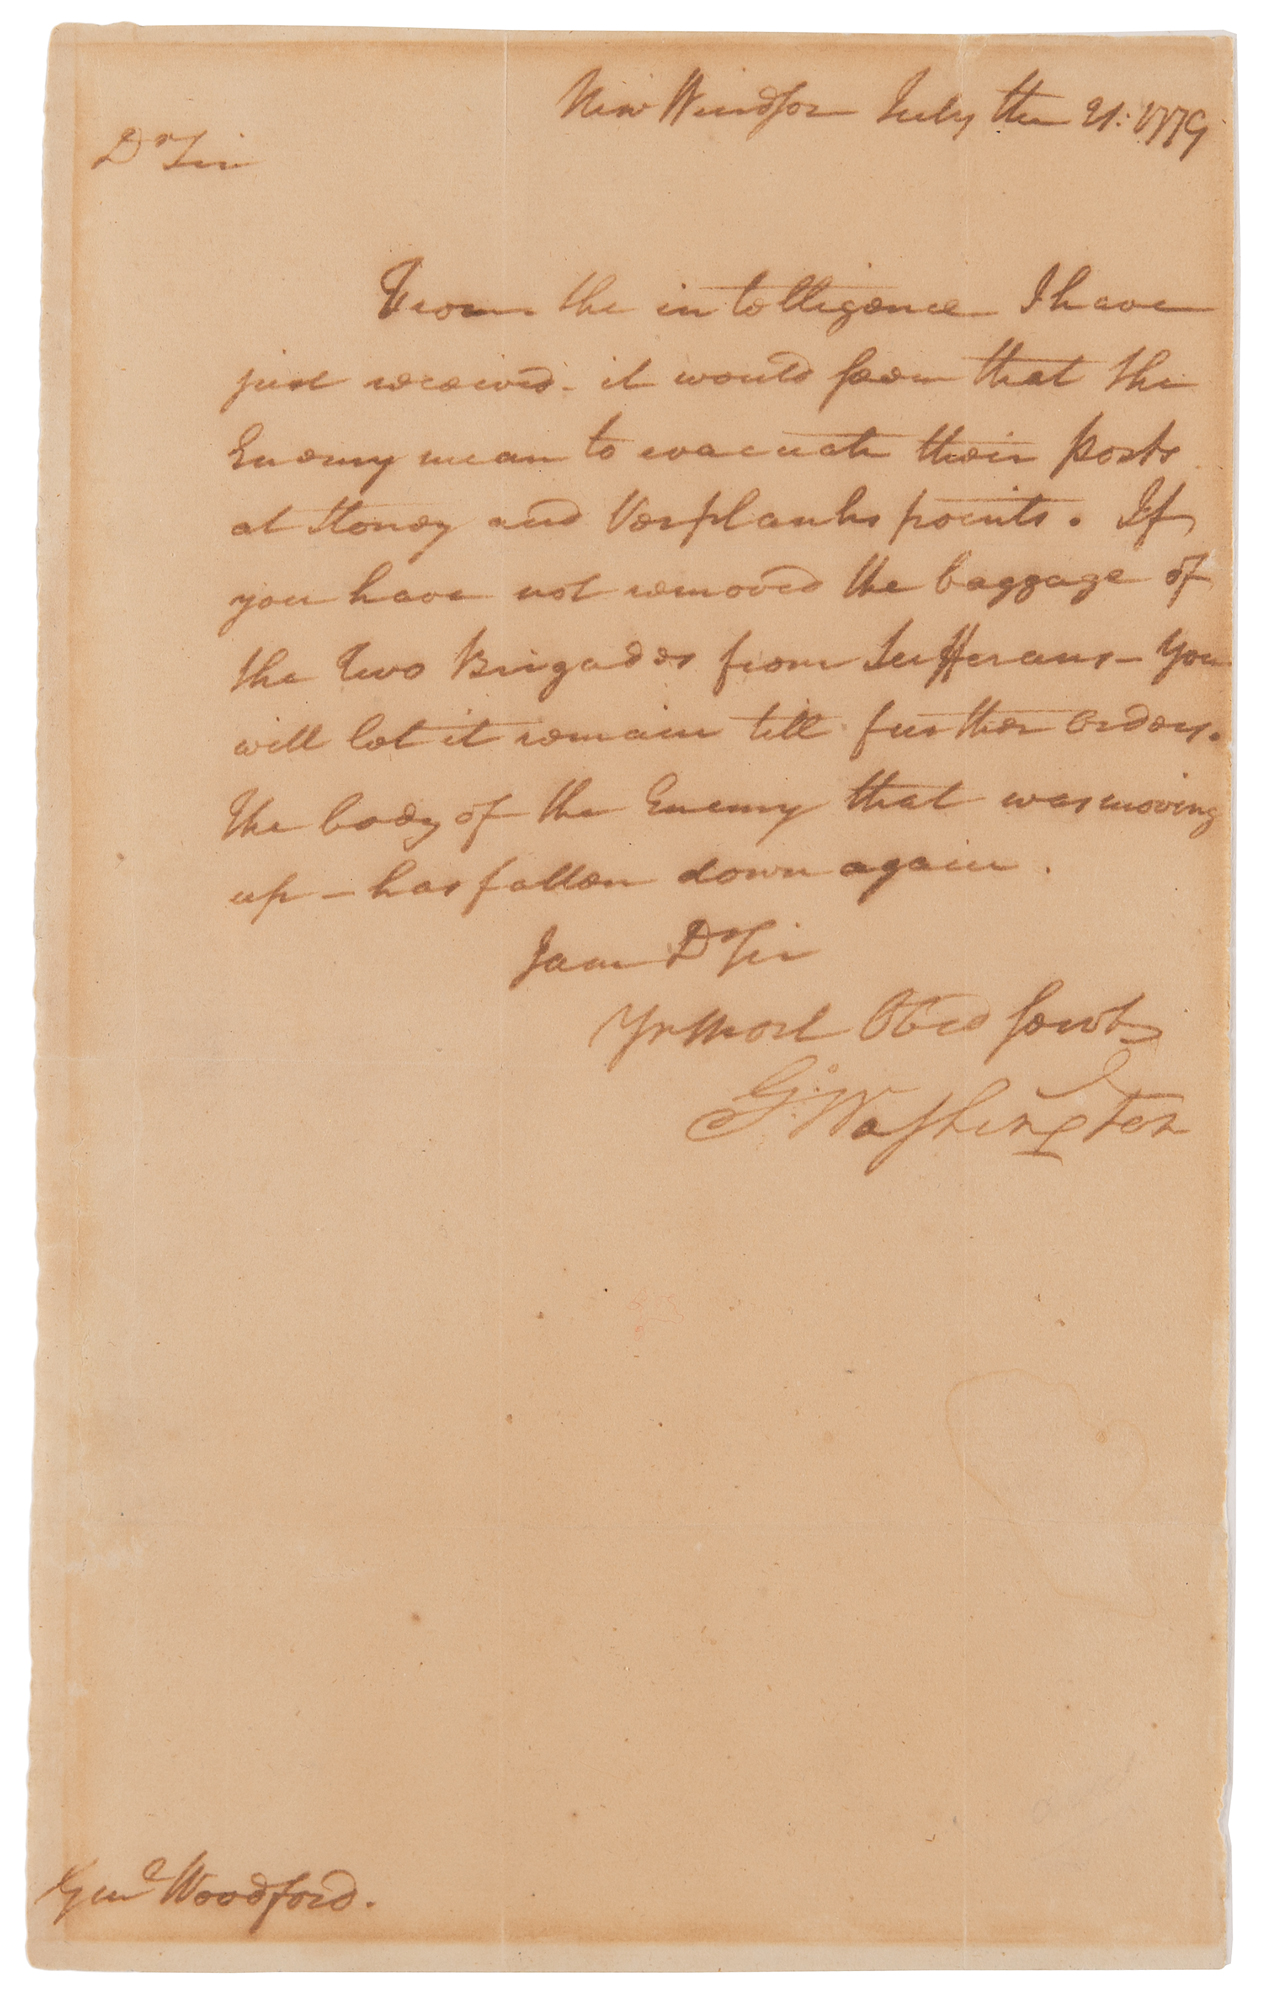 New Windsor July the 21: 1779
Dr Sir
From the intelligence I have
just received - it would seem that the
Enemy mean to evacuate their posts
at Stoney and Verplanks points. If
you have not removed the baggage of
the Two Brigades from Sufferans - You
will let it remain till further orders.
The body of the Enemy that was moving
up - has fallen down again.
I am Dr Sir
Yr Most Obed servt
Go: Washington
Genl Woodford.